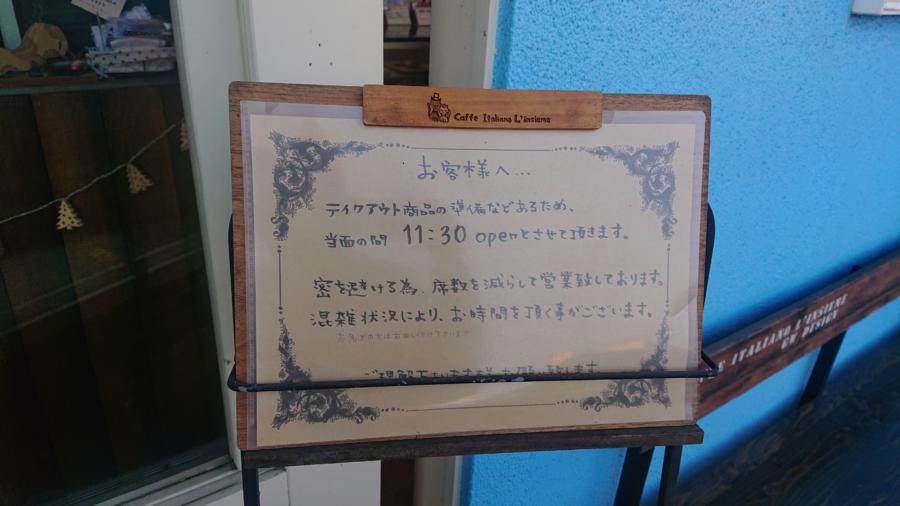 Caffe Italiano L'insieme
お客様へ...
テイクアウト商品の準備などあるため、
当面の間 11:30 openとさせて頂きます。
密を避ける為、席数を減らして営業致しております。
混雑状況により、お時間を頂く事がございます。
お急ぎの方はお申し付け下さいませ
ご理解下さいます様 お願い致します
ITALIANO L'INSIEME
GW DESIGN